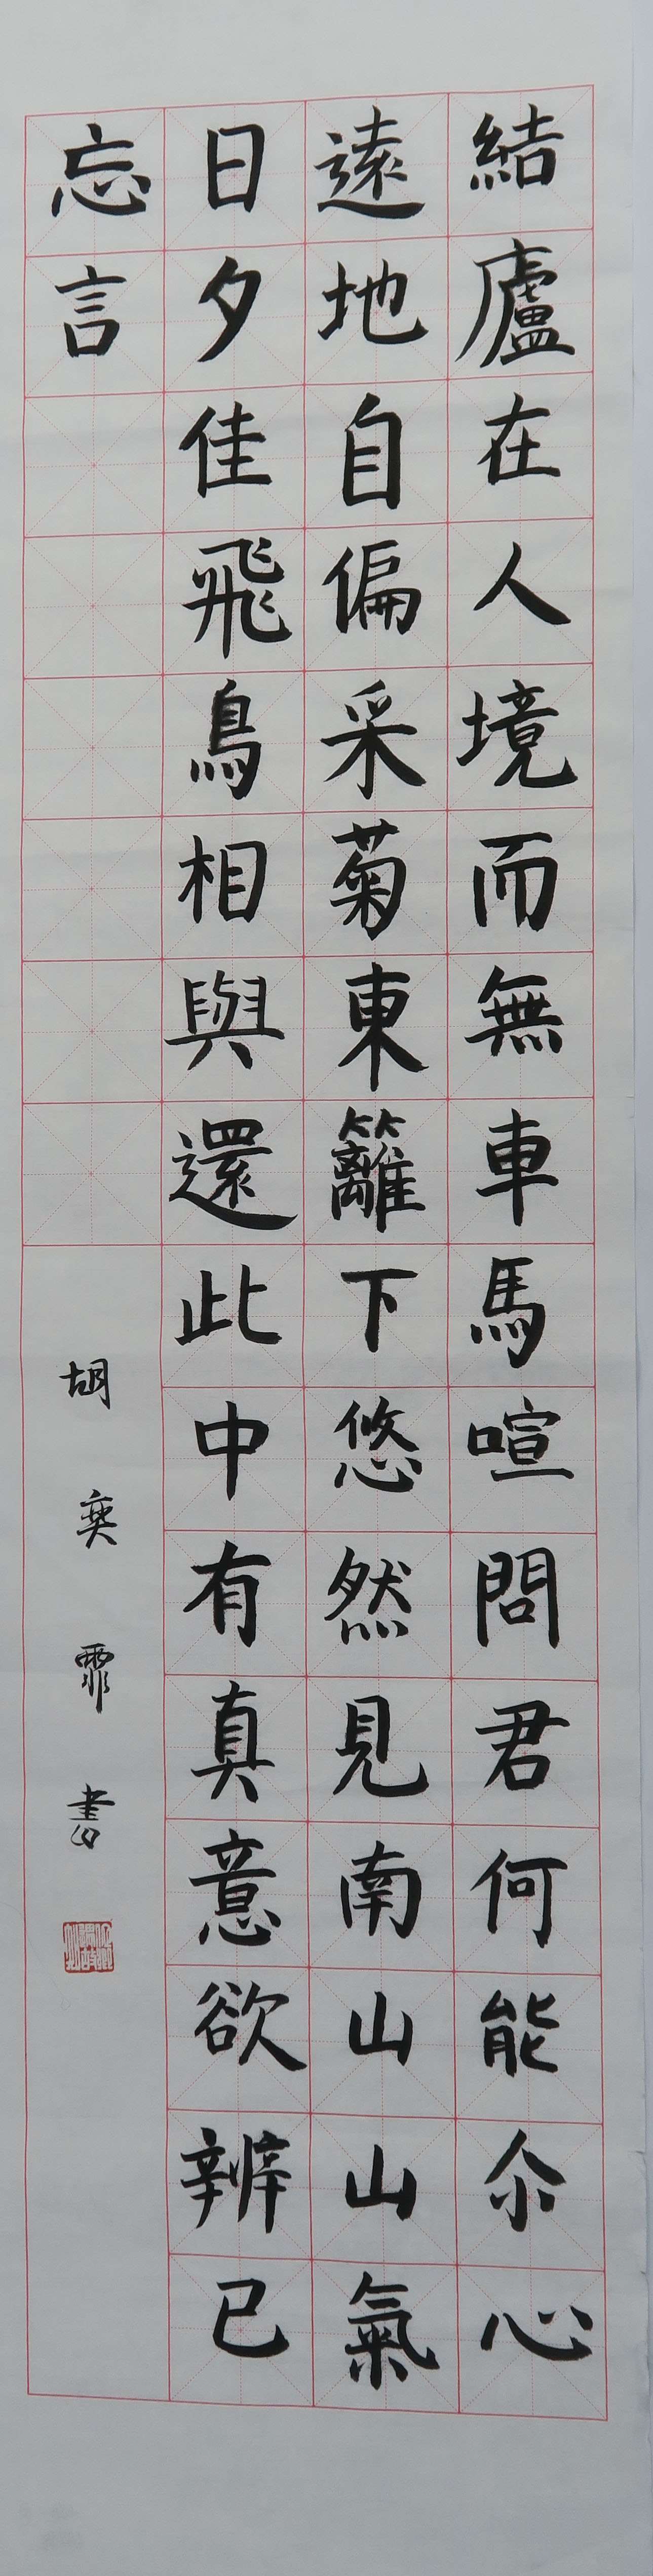 結廬在人境而無車馬喧問君何能尒心
遠地自偏采菊東籬下悠然見南山山氣
日夕佳飛鳥相與還此中有真意欲辨已
忘言
胡奕霏書